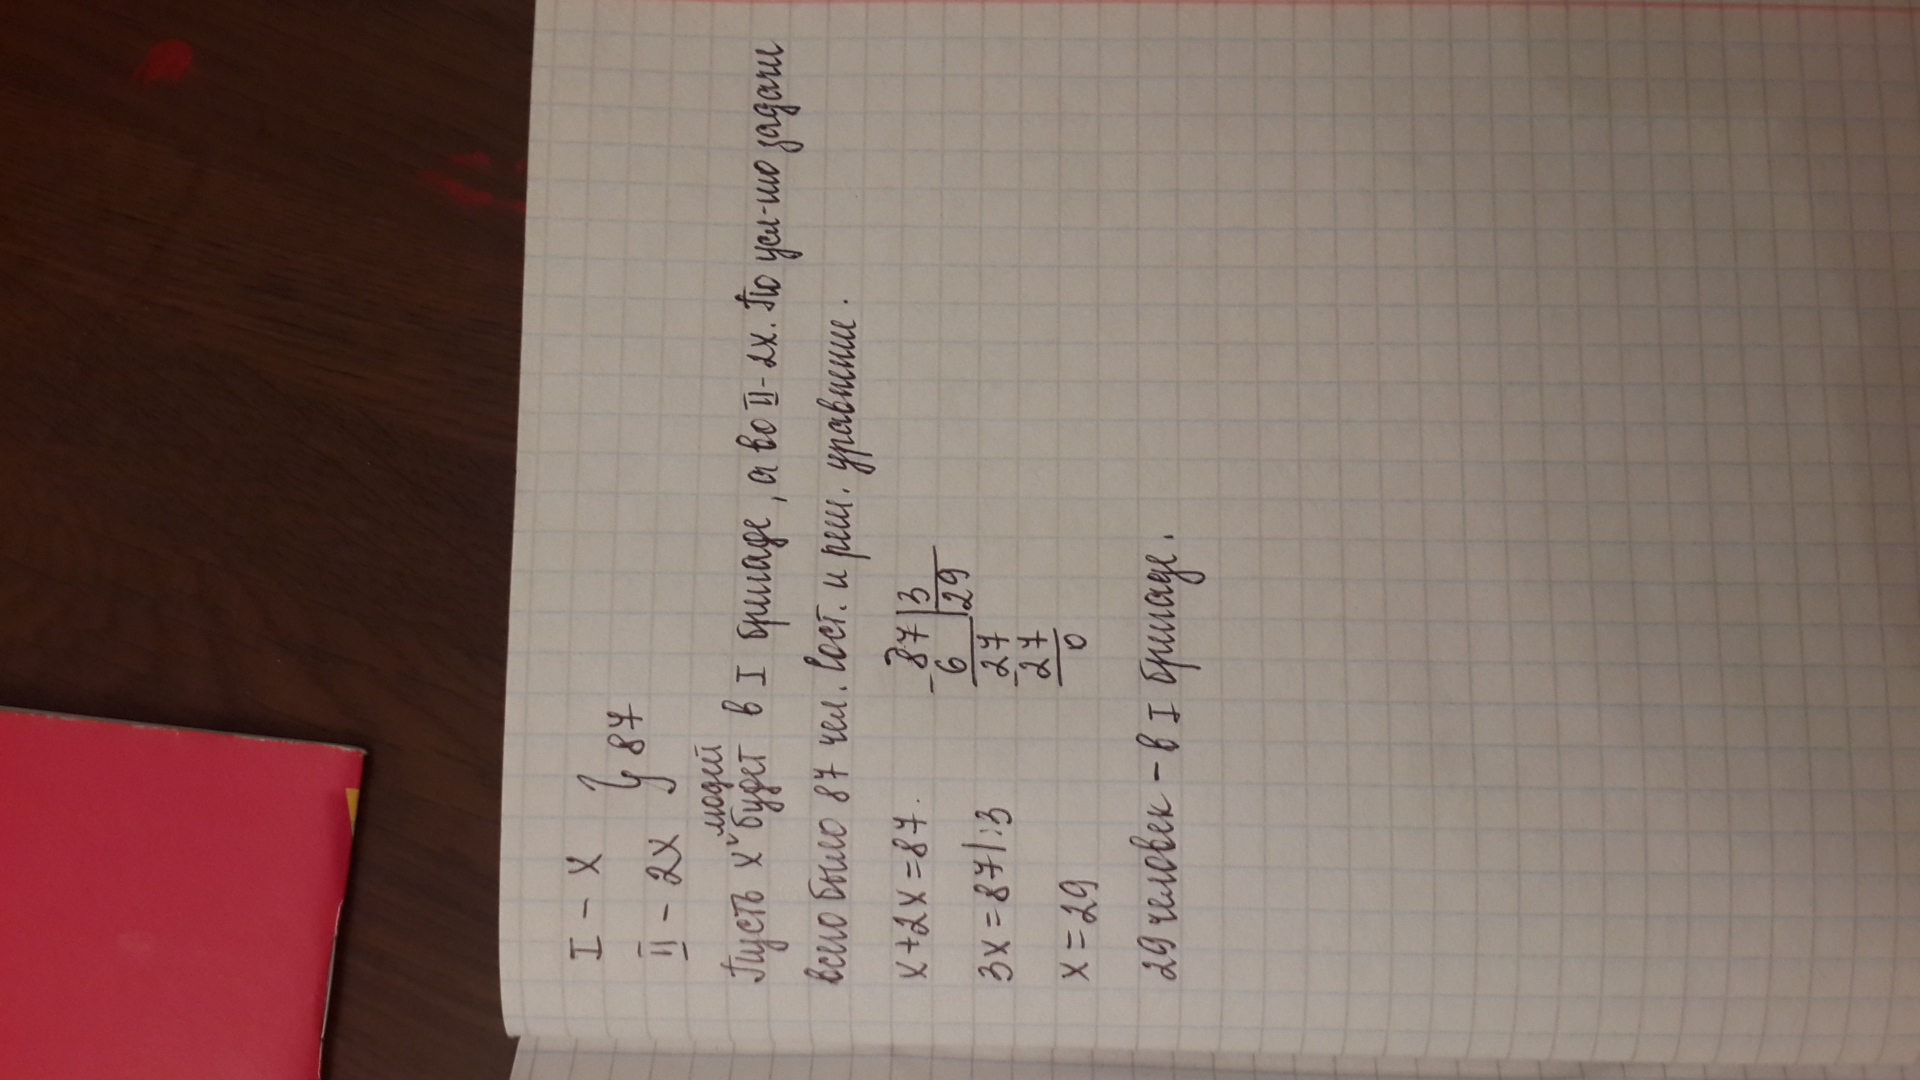 I - x
II - 2x } 87
людей
Пусть x ˅ будет в I бригаде, а во II - 2x. По усл-ию задачи
всего было 87 чел. Сост. и реш. уравнение.
x+2x=87.
3x=87|:3
x=29
-87|3
6 |29
-27
27
0
29 человек - в I бригаде.